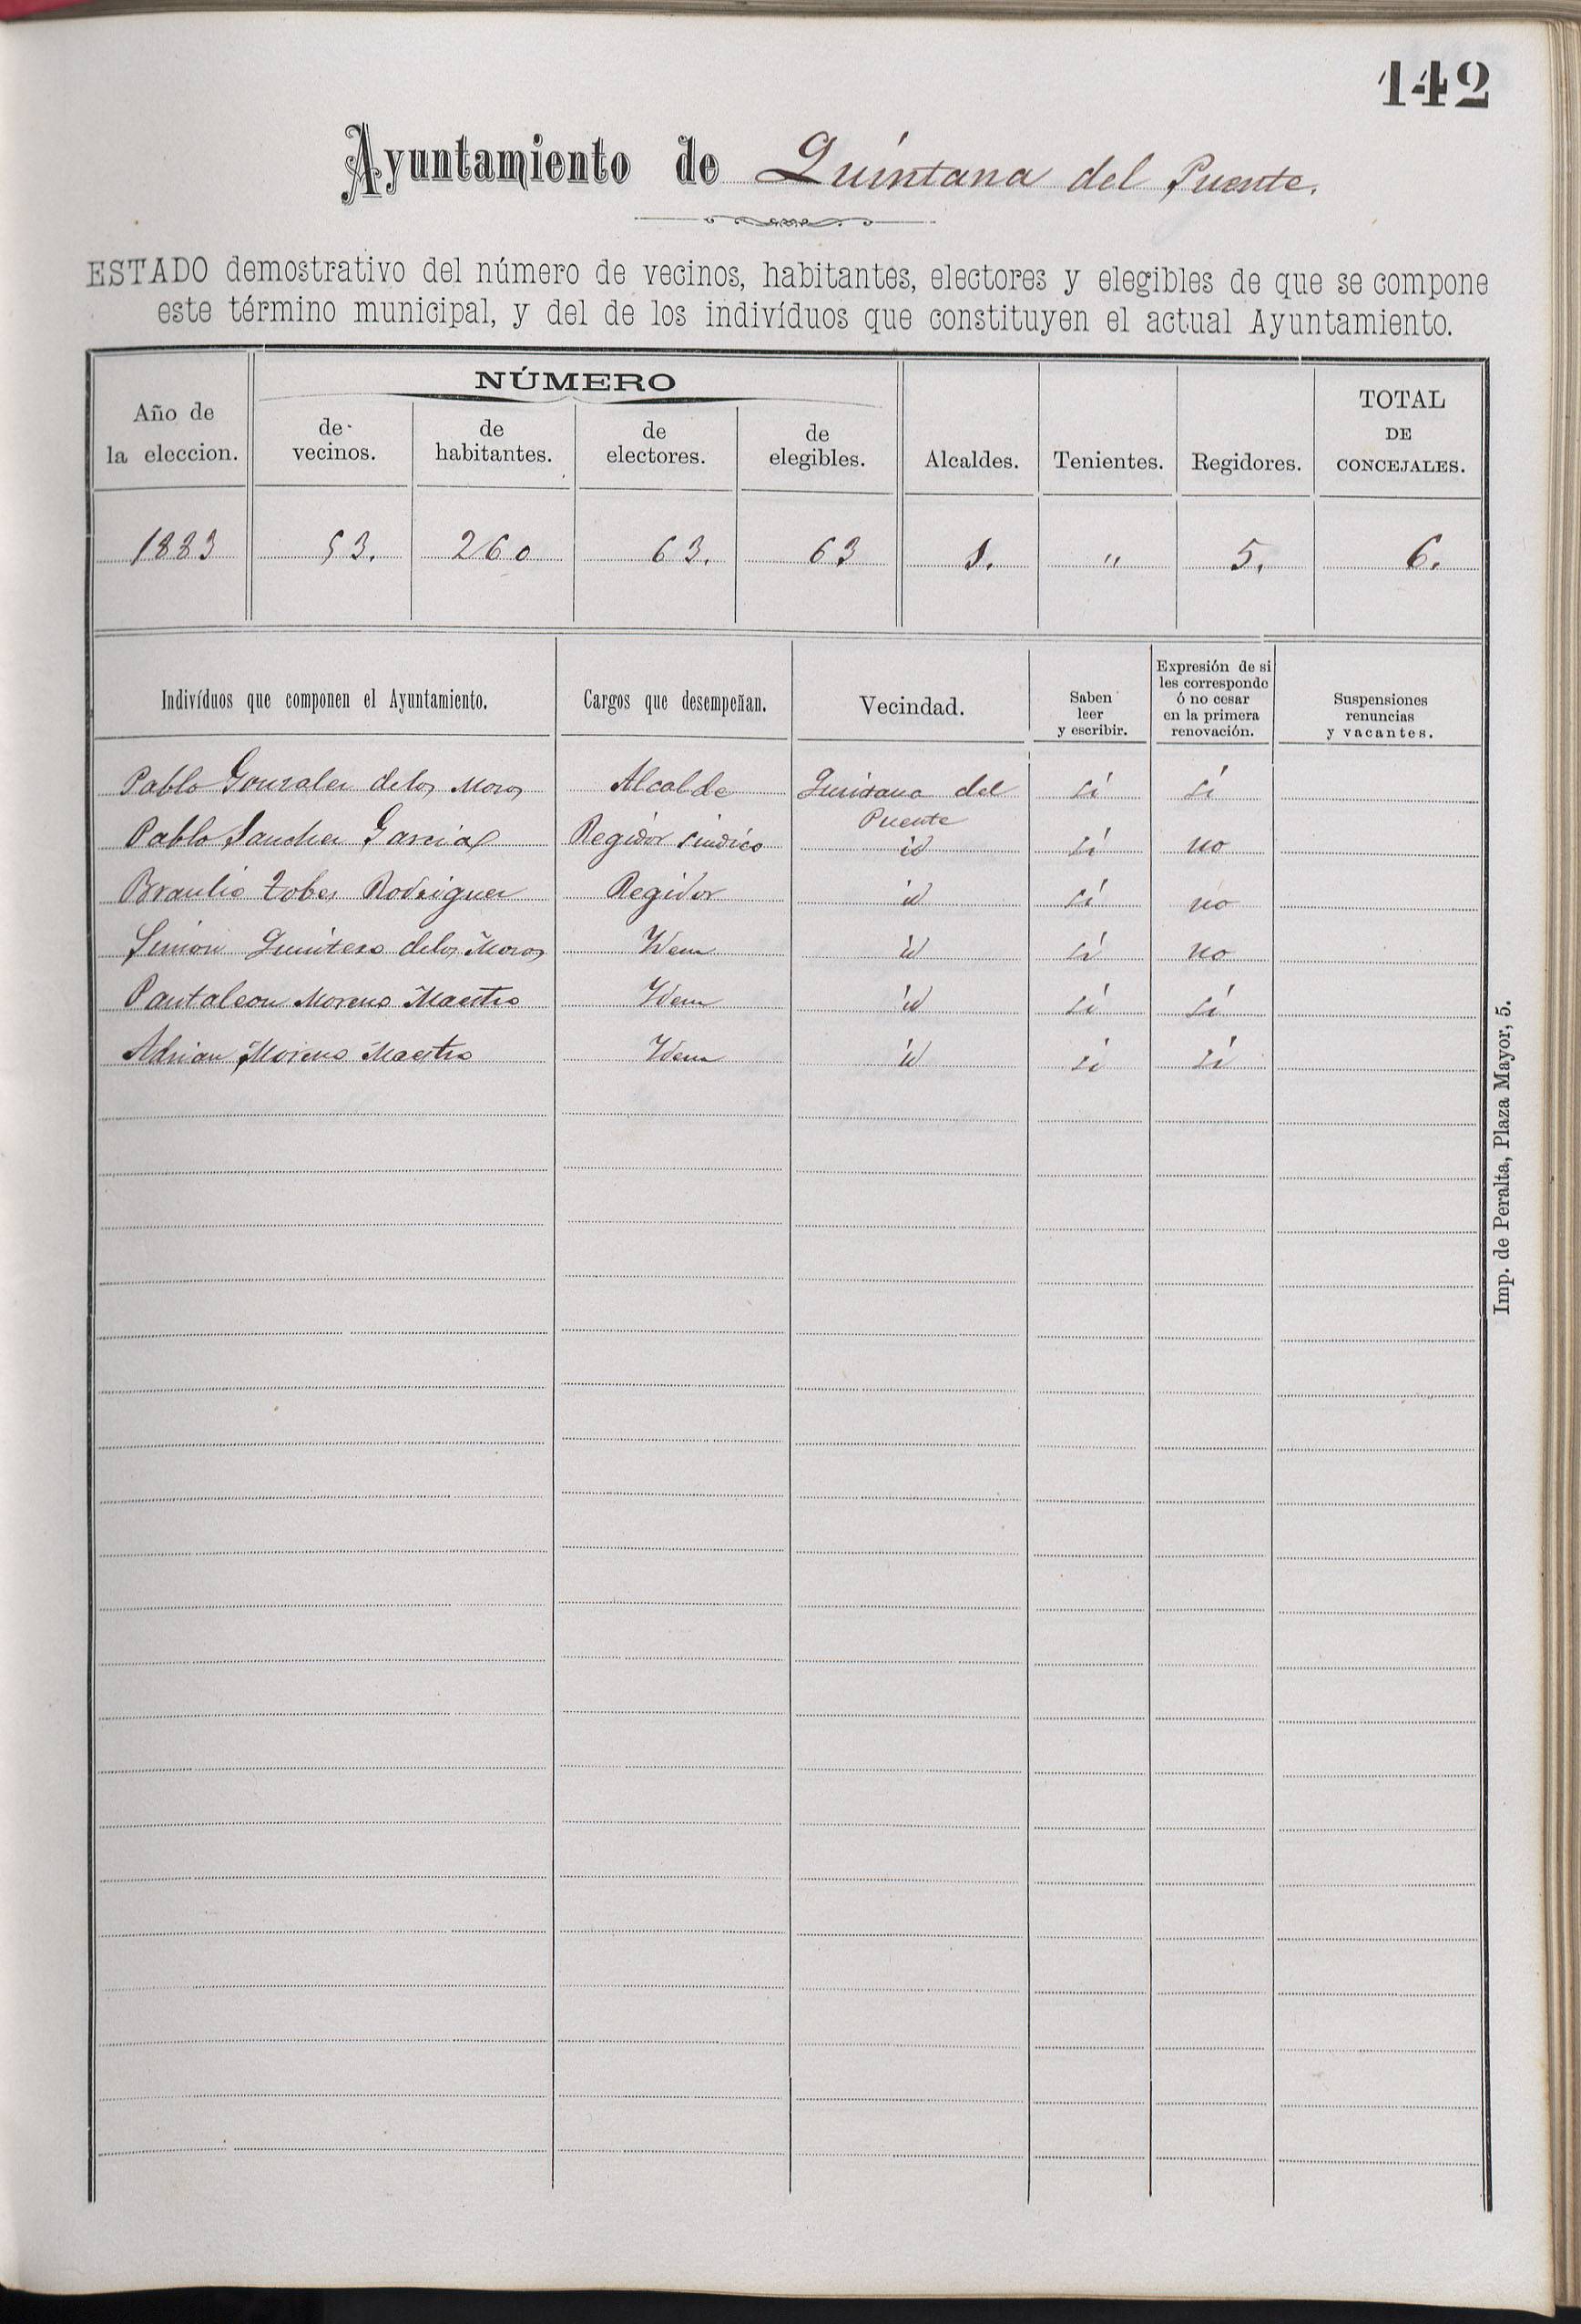 142
Ayuntamiento de Quintana del Puente.
ESTADO demostrativo del número de vecinos, habitantes, electores y elegibles de que se compone
este término municipal, y del de los indivíduos que constituyen el actual Ayuntamiento.
NÚMERO
Año de la eleccion. de vecinos. de habitantes. de electores. de elegibles. Alcaldes. Tenientes. Regidores. TOTAL DE CONCEJALES.
1883 53. 260 63. 63 1. " 5. 6.
Indivíduos que componen el Ayuntamiento. Cargos que desempeñan. Vecindad. Saben leer y escribir. Expresión de si les corresponde ó no cesar en la primera renovación. Suspensiones renuncias y vacantes.
Pablo Gonzalez de los Mozos Alcalde Quintana del Puente si si
Pablo Sanchez Garcia Regidor sindico id si no
Braulio Tobes Rodriguez Regidor id si no
Simon Quintero de los Mozos Idem id si no
Pantaleon Moreno Maestro Idem id si si
Adrian Moreno Maestro Idem id si si
Imp. de Peralta, Plaza Mayor, 5.